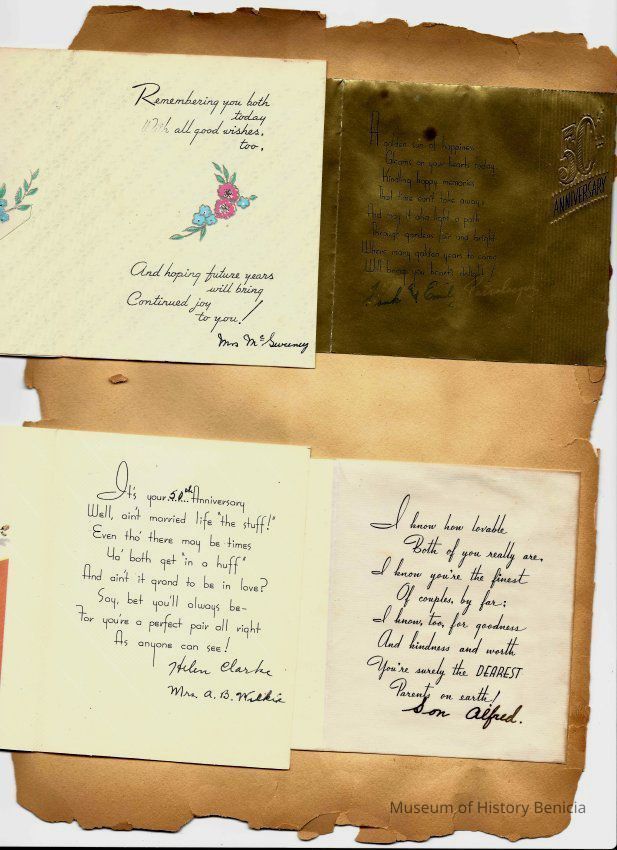 Remembering you both
today
With all good wishes,
too,
And hoping future years
will bring
Continued joy
to you!
Mrs McSweeney
A golden sun of happiness
Gleams on your hearts today
Kindling happy memories
That time can't take away;
And may it also light a path
Through gardens fair and bright
Where many golden years to come
Will bring you heart's delight!
Frank & Emily
50th
ANNIVERSARY
It's your 50th Anniversary
Well, ain't married life "the stuff!"
Even tho' there may be times
Yo' both get "in a huff"
And ain't it grand to be in love?
Say, bet you'll always be-
For you're a perfect pair all right
As anyone can see!
Helen Clarke
Mrs. A. B. Wilkie
I know how lovable
Both of you really are,
I know you're the finest
Of couples, by far;
I know, too, for goodness
And kindness and worth
You're surely the DEAREST
Parents on earth!
Son Alfred.
Museum of History Benicia